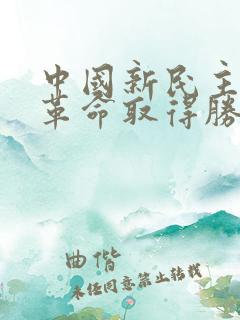 中國新民主
革命取得勝
曲偕
未经同意禁止转载